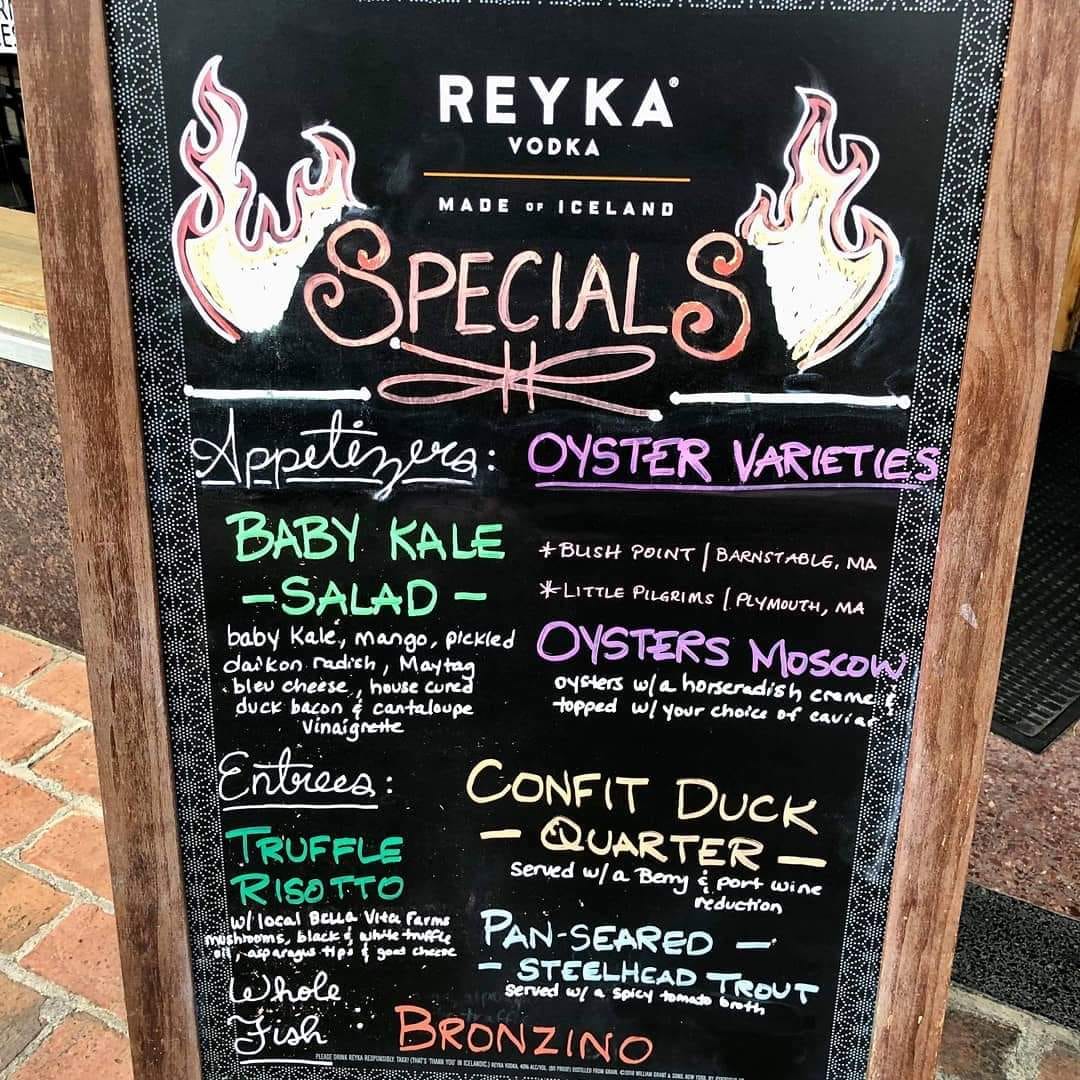 REYKA®
VODKA
MADE OF ICELAND
SPECIALS
Appetizers:
BABY KALE
- SALAD -
baby Kale, mango, pickled
daikon radish, Maytag
bleu cheese, house cured
duck bacon & cantaloupe
Vinaigrette
OYSTER VARIETIES
* BLISH POINT | BARNSTABLE, MA
* LITTLE PILGRIMS | PLYMOUTH, MA
OYSTERS MOSCOW
oysters w/ a horseradish creme &
topped w/ your choice of caviar
Entrees:
TRUFFLE
RISOTTO
w/ local BELLA Vita Farms
mushrooms, black & white truffle
oil, asparagus tips & goat cheese
CONFIT DUCK
- QUARTER -
served w/ a Berry & port wine
reduction
PAN-SEARED -
- STEELHEAD TROUT
served w/ a spicy tomato broth
Whole
Fish :
BRONZINO
PLEASE DRINK REYKA RESPONSIBLY. TAKK! (THAT'S 'THANK YOU' IN ICELANDIC.) REYKA VODKA, 40% ALC/VOL. (80 PROOF) DISTILLED FROM GRAIN. ©2018 WILLIAM GRANT & SONS, NEW YORK, NY.